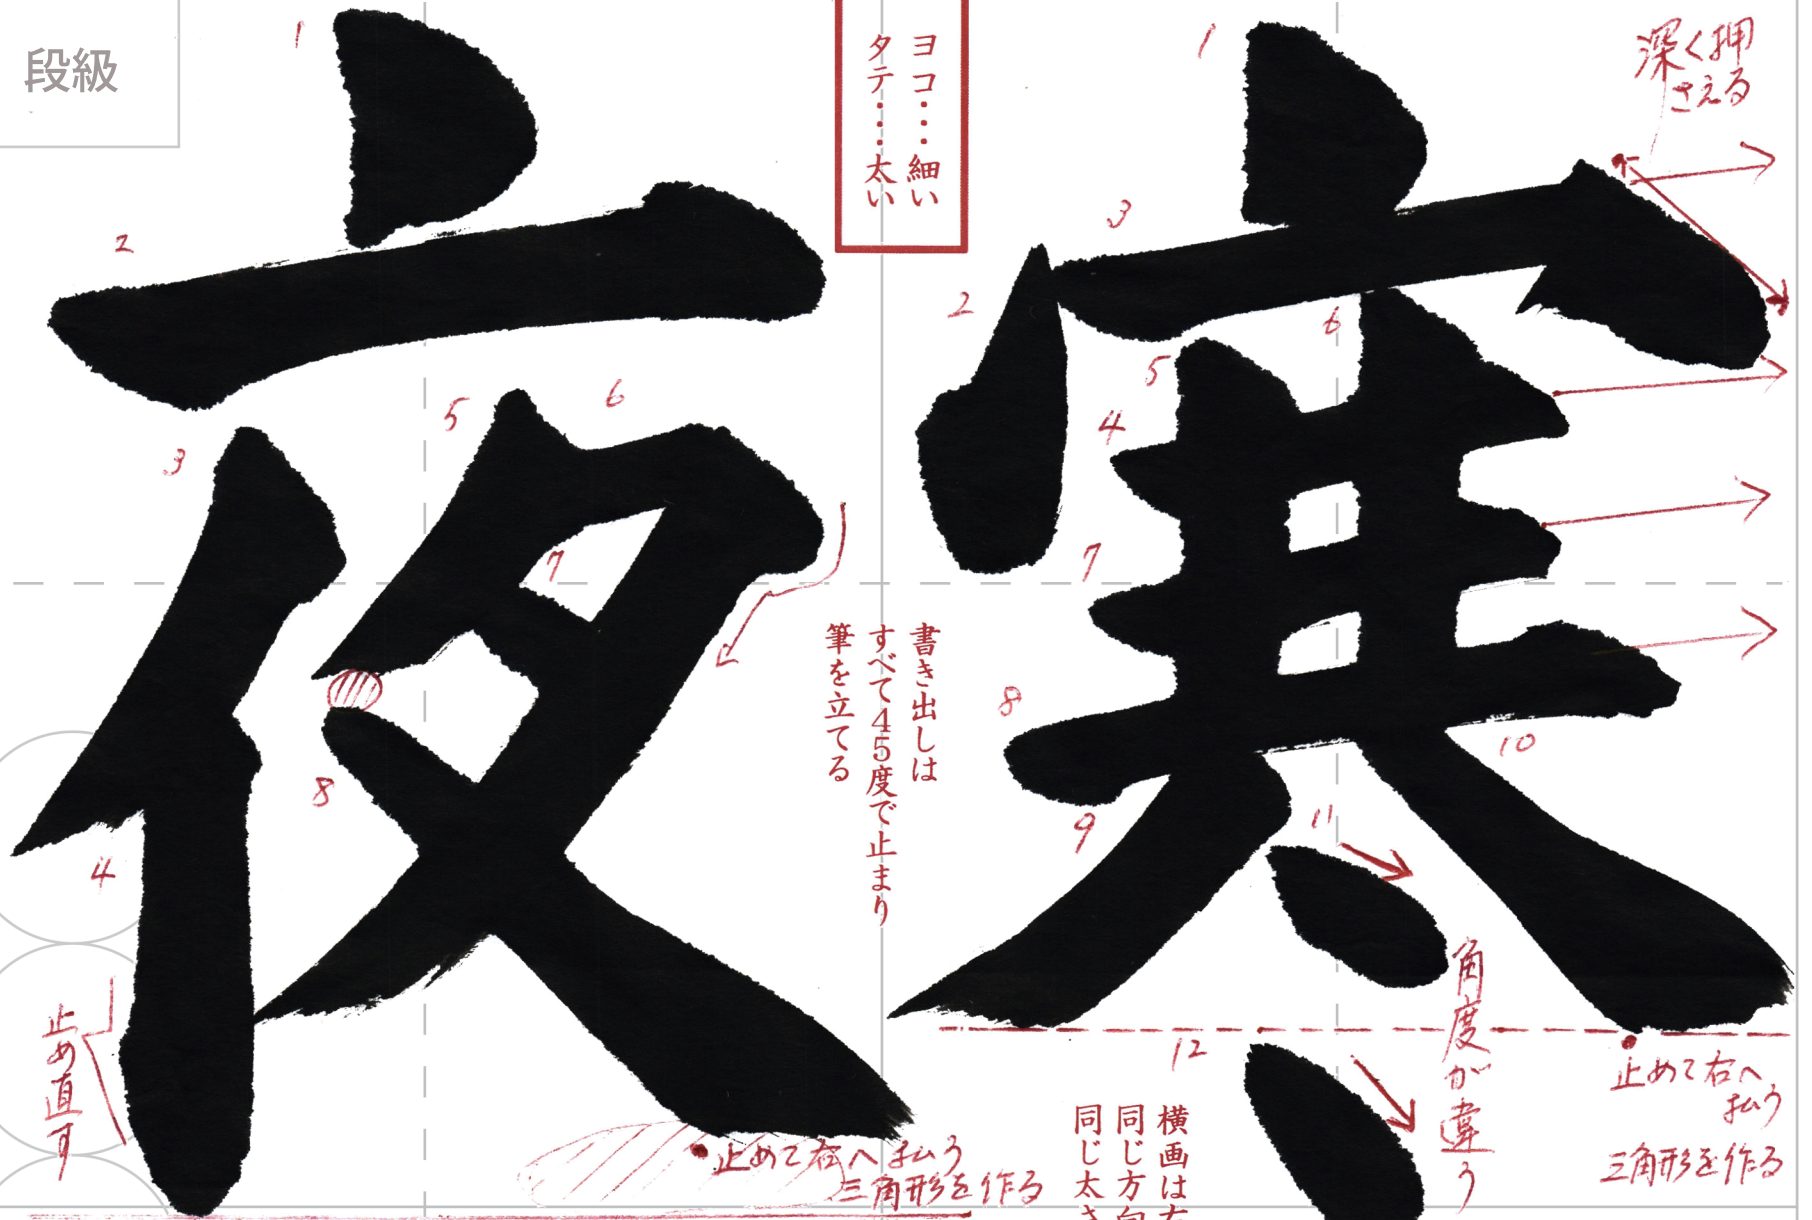 寒
夜
段級
ヨコ・・・細い
タテ・・・太い
深く押
さえる
1
2
3
4
5
6
7
8
9
10
11
12
書き出しは
すべて45度で止まり
筆を立てる
角度が違う
止めて右へ
払う
三角形を作る
横画は
同じ方向
同じ太さ
1
2
3
4
5
6
7
8
止め直す
止めて右へ払う
三角形を作る